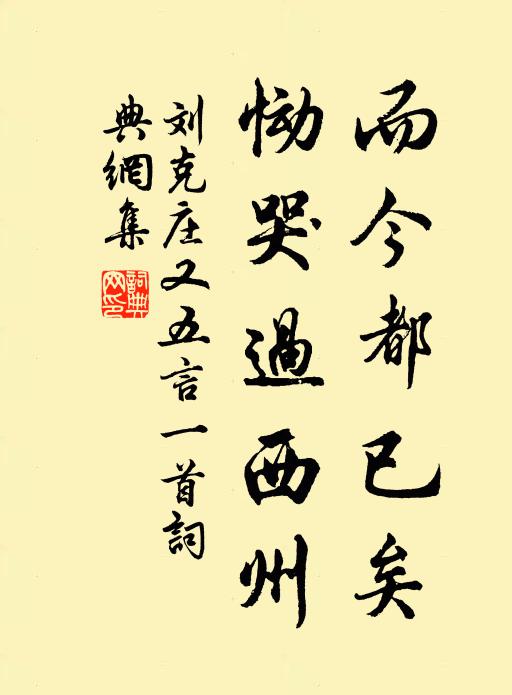 而今都已矣
恸哭過西州
刘克庄又五言一首詞
典網集
詞典網印